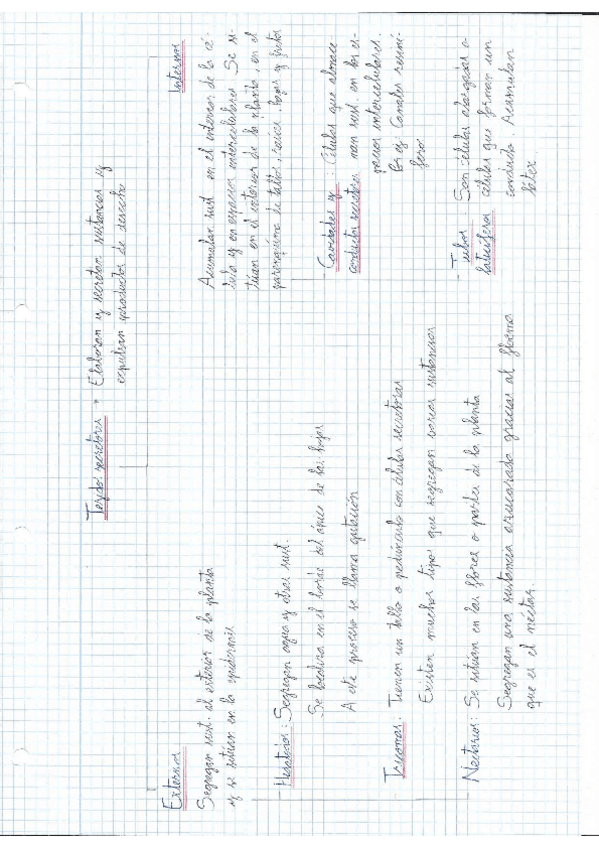 Tejidos secretores → Elaboran y secretan sustancias y
expulsan productos de desecho
Externos
Segregan sust. al exterior de la planta
y se sitúan en la epidermis.
- Hidatodos: Segregan agua y otras sust.
Se localiza en el borde del ápice de las hojas
A este proceso se llama gutación
- Tricomas: Tienen un tallo o pedúnculo con células secretoras
Existen muchos tipos que segregan varias sustancias
- Nectarios: Se sitúan en las flores o partes de la planta
Segregan una sustancia azucarada gracias al floema
que es el néctar.
Internos
Acumulan sust en el interior de la cé-
lula y en espacios intercelulares. Se si-
túan en el interior de la planta, en el
parénquima de tallos, raíces, hojas y frutos
- Cavidades y : Células que almace-
conductos secretores nan sust. en los es-
pacios intercelulares.
Por ej: Canales resiní-
fero
- Tubos Son células alargadas o
laticíferos células que forman un
conducto. Acumulan
látex.